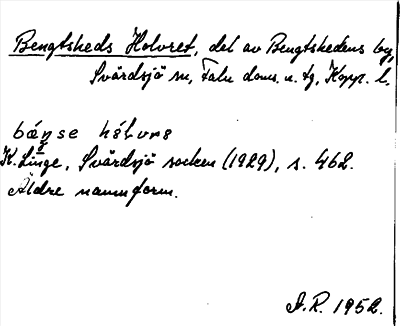 Bengtsheds Holvret, del av Bengtshedens by,
Svärdsjö sn, Falu doms. n. tg, Kopp. l.
K. Linge, Svärdsjö socken (1929), s. 462.
Äldre namnform.
A.R. 1952.